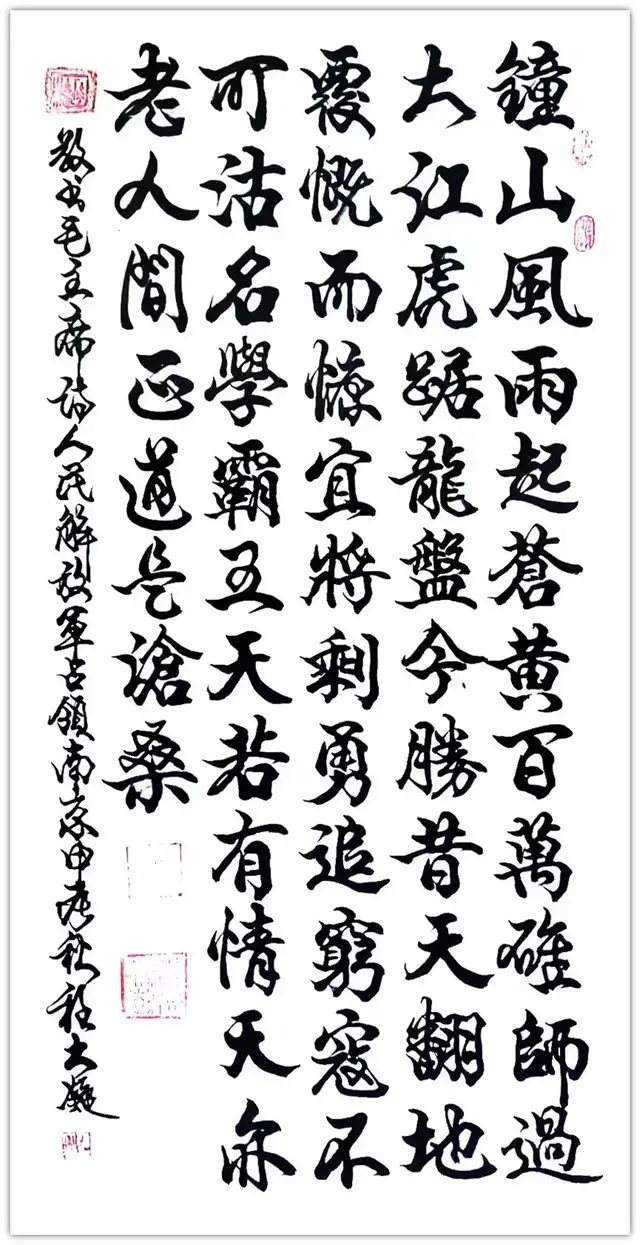 鐘山風雨起蒼黃百萬雄師過
大江虎踞龍盤今勝昔天翻地
覆慨而慷宜將剩勇追窮寇不
可沽名學霸王天若有情天亦
老人間正道是滄桑
敬书毛主席诗人民解放軍占領南京甲辰秋程大